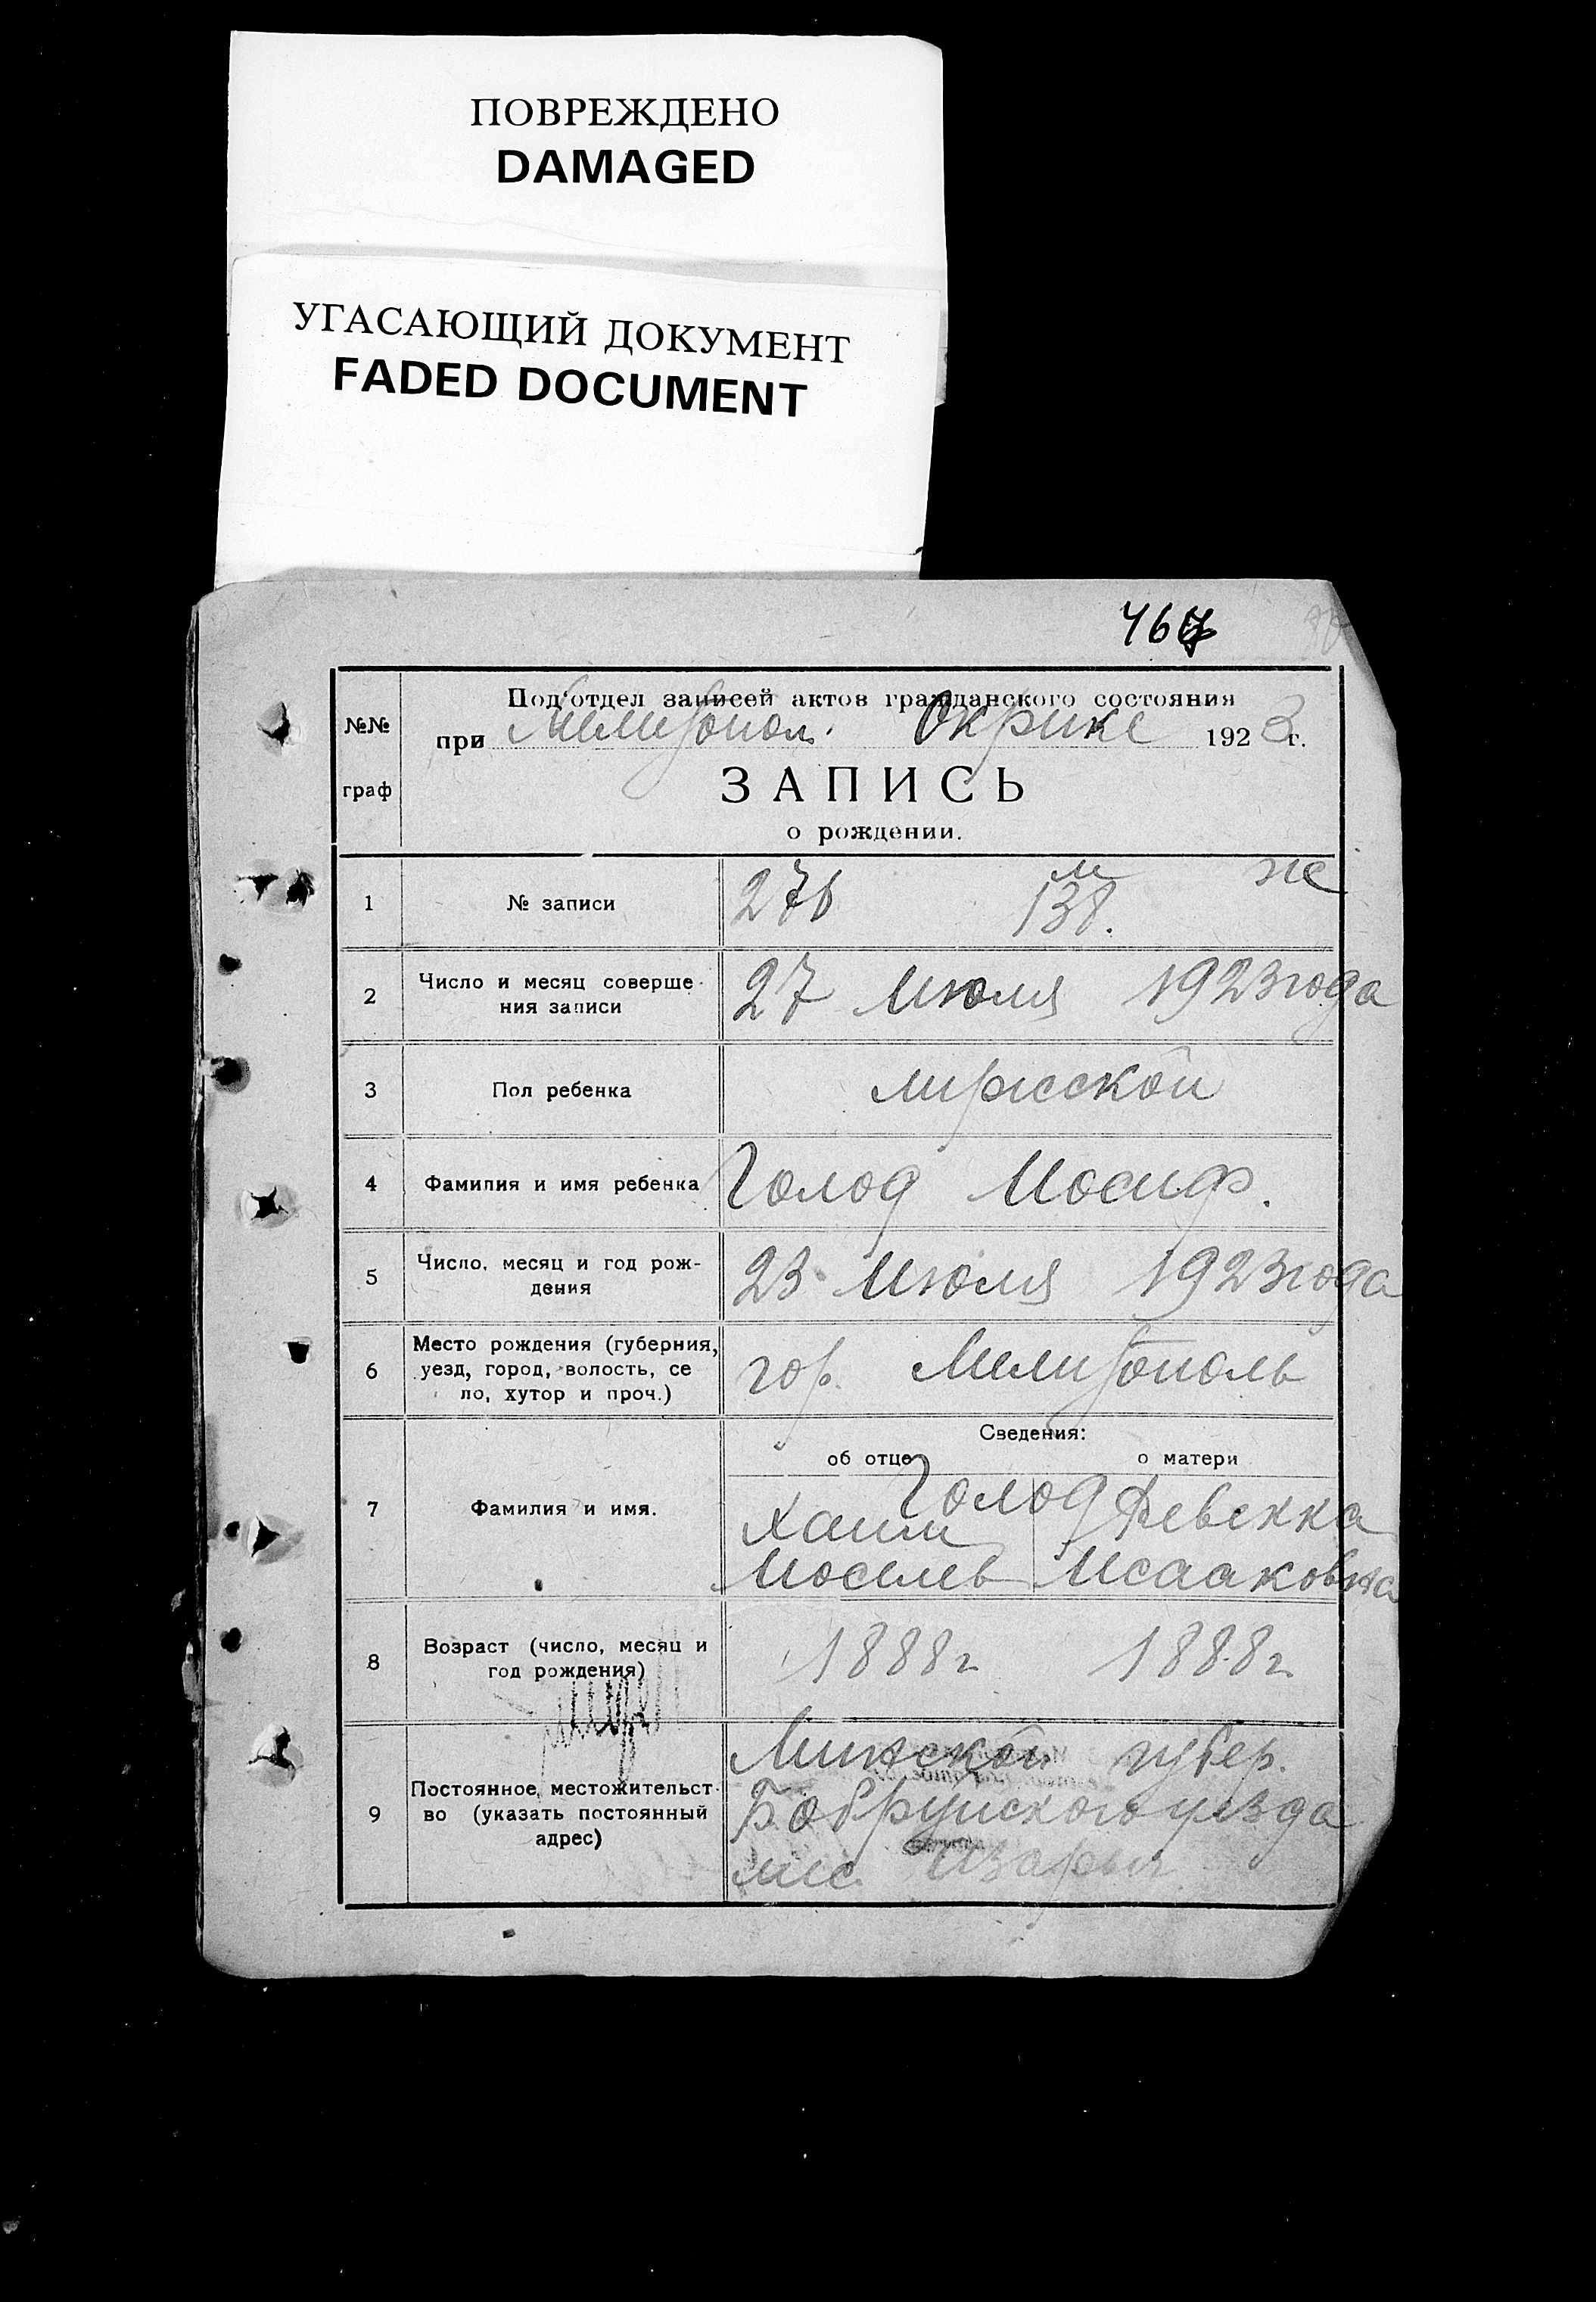 ПОВРЕЖДЕНО
DAMAGED
УГАСАЮЩИЙ ДОКУМЕНТ
FADED DOCUMENT
467
№№ граф
Под'отдел записей актов гражданского состояния
при Мелитопол. Окрике 1923 г.
ЗАПИСЬ
о рождении.
м ж
1 № записи 276 138.
2 Число и месяц соверше-
ния записи 27 Июля 1923 года
3 Пол ребенка мужской
4 Фамилия и имя ребенка Голод Иосиф.
5 Число, месяц и год рож-
дения 23 Июля 1923 года
6 Место рождения (губерния,
уезд, город, волость, се
ло, хутор и проч.) гор. Мелитополь
Сведения:
об отце о матери
7 Фамилия и имя. Голод
Хаим Ревекка
Иосилев Исааковна
8 Возраст (число, месяц и
год рождения) 1888 г 1888 г.
9 Постоянное местожительст-
во (указать постоянный
адрес)
Минской губер.
Бобруйского уезда
мес.